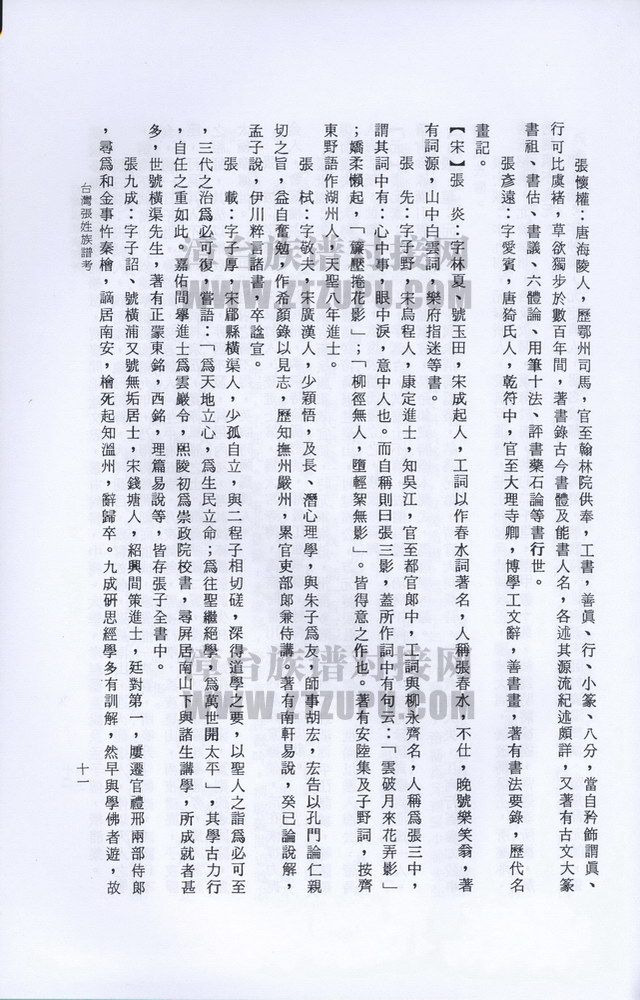 張懷權：唐海陵人，歷鄂州司馬，官至翰林院供奉，工書，善眞、行、小篆、八分，當自矜飾謂眞、
行可比虞褚，草欲獨步於數百年間，著書錄古今書體及能書人名，各述其源流紀述頗詳，又著有古文大篆
書祖、書估、書議、六體論、用筆十法、評書藥石論等書行世。
張彥遠：字愛賓，唐猗氏人，乾符中，官至大理寺卿，博學工文辭，善書畫，著有書法要錄，歷代名
畫記。
【宋】張　炎：字林夏、號玉田，宋成起人，工詞以作春水詞著名，人稱張春水，不仕，晚號樂笑翁，著
有詞源，山中白雲詞，樂府指迷等書。
張　先：字子野，宋烏程人，康定進士，知吳江，官至都官郎中，工詞與柳永齊名，人稱爲張三中，
謂其詞中有：心中事，眼中淚，意中人也。而自稱則曰張三影，蓋所作詞中有句云：「雲破月來花弄影」
；嬌柔懶起，「簾壓捲花影」；「柳徑無人，墮輕絮無影」。皆得意之作也。著有安陸集及子野詞，按齊
東野語作湖州人，天聖八年進士。
張　栻：字敬夫，宋廣漢人，少穎悟，及長、潛心理學，與朱子爲友，師事胡宏，宏告以孔門論仁親
切之旨，益自奮勉，作希顏錄以見志，歷知撫州嚴州，累官吏部郎兼侍講。著有南軒易說，癸巳論說解，
孟子說，伊川粹言諸書，卒諡宣。
張　載：字子厚，宋郿縣橫渠人，少孤自立，與二程子相切磋，深得道學之要，以聖人之詣爲必可至
，三代之治爲必可復，嘗語：「爲天地立心，爲生民立命；爲往聖繼絕學，爲萬世開太平」，其學古力行
，自任之重如此。嘉佑間擧進士爲雲巖令，熙陵初爲崇政院校書，尋屏居南山下與諸生講學，所成就者甚
多，世號橫渠先生，著有正蒙東銘，西銘，理窟易說等，皆存張子全書中。
張九成：字子詔、號橫浦又號無垢居士，宋錢塘人，紹興間策進士，廷對第一，屢遷官禮邢兩部侍郎
，尋爲和金事忤秦檜，謫居南安，檜死起知溫州，辭歸卒。九成硏思經學多有訓解，然早與學佛者遊，故
台灣張姓族譜考
十一
漳台族谱对接网
WWW.ZTZUPU.COM
漳台族谱对接网
WWW.ZTZUPU.COM